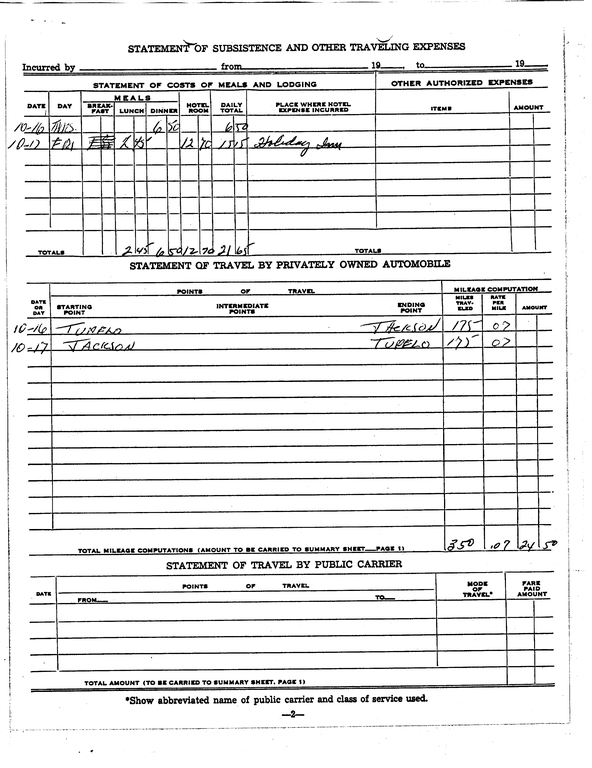 STATEMENT OF SUBSISTENCE AND OTHER TRAVELING EXPENSES
Incurred by from 19 , to 19
STATEMENT OF COSTS OF MEALS AND LODGING OTHER AUTHORIZED EXPENSES
DATE DAY MEALS BREAK-FAST LUNCH DINNER HOTEL ROOM DAILY TOTAL PLACE WHERE HOTEL EXPENSE INCURRED ITEMS AMOUNT
10-16 6 50 6 50
10-17 FRI 2 45 12 70 15 15 Holiday Inn
TOTALS 2 45 6 50 12 70 21 65 TOTALS
STATEMENT OF TRAVEL BY PRIVATELY OWNED AUTOMOBILE
POINTS OF TRAVEL MILEAGE COMPUTATION
DATE OR DAY STARTING POINT INTERMEDIATE POINTS ENDING POINT MILES TRAV-ELED RATE PER MILE AMOUNT
10-16 TUPELO JACKSON 175 07
10-17 JACKSON TUPELO 175 07
TOTAL MILEAGE COMPUTATIONS (AMOUNT TO BE CARRIED TO SUMMARY SHEET—PAGE 1) 350 .07 24 50
STATEMENT OF TRAVEL BY PUBLIC CARRIER
DATE POINTS OF TRAVEL MODE OF TRAVEL* FARE PAID AMOUNT
FROM— TO—
TOTAL AMOUNT (TO BE CARRIED TO SUMMARY SHEET, PAGE 1)
*Show abbreviated name of public carrier and class of service used.
—2—